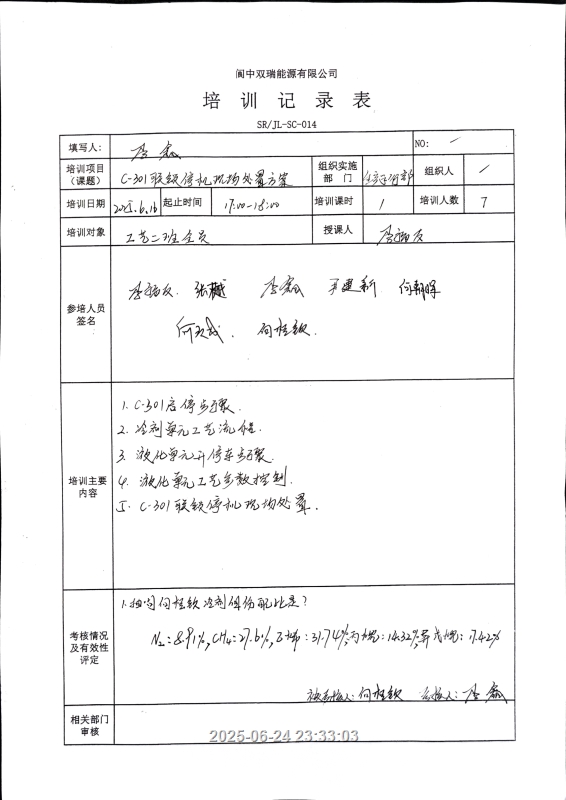 阆中双瑞能源有限公司
培 训 记 录 表
SR/JL-SC-014
填写人： 李 鑫 NO: /
培训项目（课题） C-301联锁停机现场处置方案 组织实施部 门 组织人 /
培训日期 2025.6.16 起止时间 17:00-18:00 培训课时 1 培训人数 7
培训对象 工艺二班全员 授课人
参培人员签名 李 鑫 何朝晖
何桂钦.
培训主要内容
1. C-301启停步骤.
2. 冷剂单元工艺流程.
3. 液化单元开停车步骤.
4. 液化单元工艺参数控制.
5. C-301联锁停机现场处置.
考核情况及有效性评定
1. 提问何桂钦冷剂组份配比是？
N₂:8.91%, CH₄:27.6%, 乙烯:31.74%, 丙烷:14.32%, 异戊烷:17.42%
被考核人:何桂钦 考核人:李 鑫
相关部门审核
2025-06-24 23:33:03